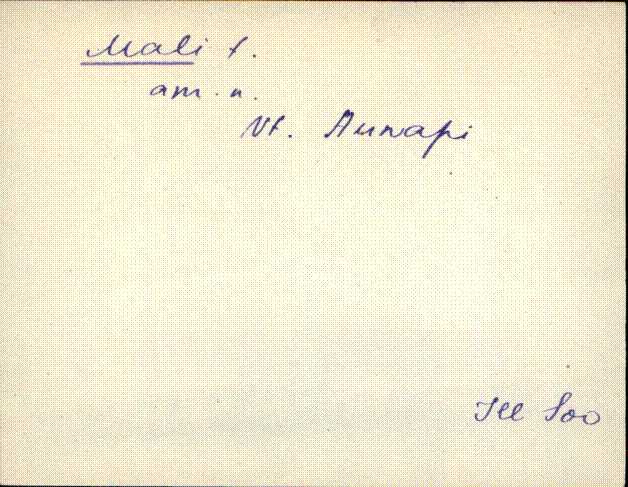 Mali t.
am. n.
Vt. Aunapi
Ill Soo